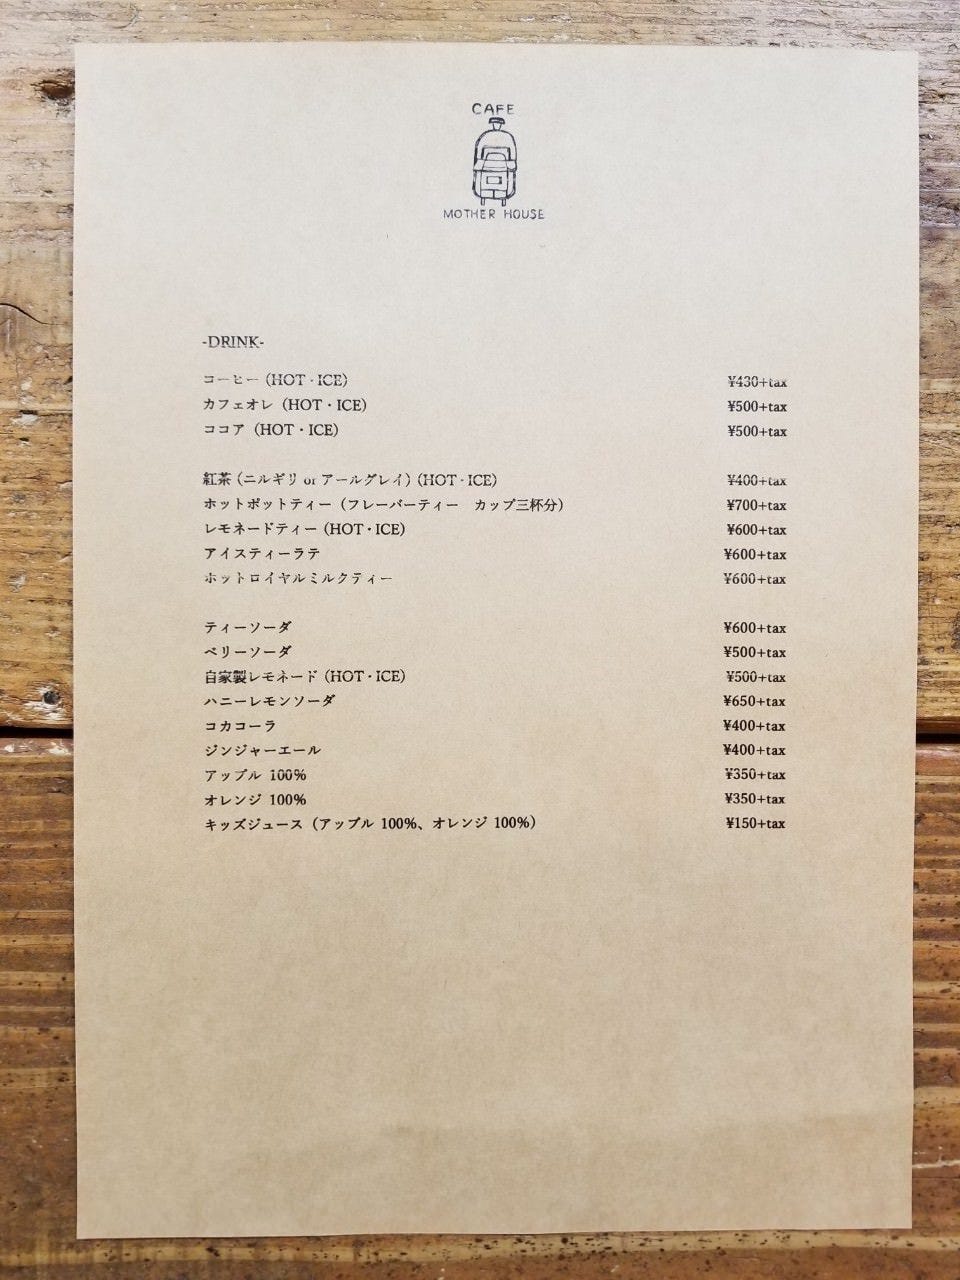 CAFE
MOTHER HOUSE
-DRINK-
コーヒー（HOT・ICE） ¥430+tax
カフェオレ（HOT・ICE） ¥500+tax
ココア（HOT・ICE） ¥500+tax
紅茶（ニルギリ or アールグレイ）（HOT・ICE） ¥400+tax
ホットポットティー（フレーバーティー　カップ三杯分） ¥700+tax
レモネードティー（HOT・ICE） ¥600+tax
アイスティーラテ ¥600+tax
ホットロイヤルミルクティー ¥600+tax
ティーソーダ ¥600+tax
ベリーソーダ ¥500+tax
自家製レモネード（HOT・ICE） ¥500+tax
ハニーレモンソーダ ¥650+tax
コカコーラ ¥400+tax
ジンジャーエール ¥400+tax
アップル 100% ¥350+tax
オレンジ 100% ¥350+tax
キッズジュース（アップル 100%、オレンジ 100%） ¥150+tax